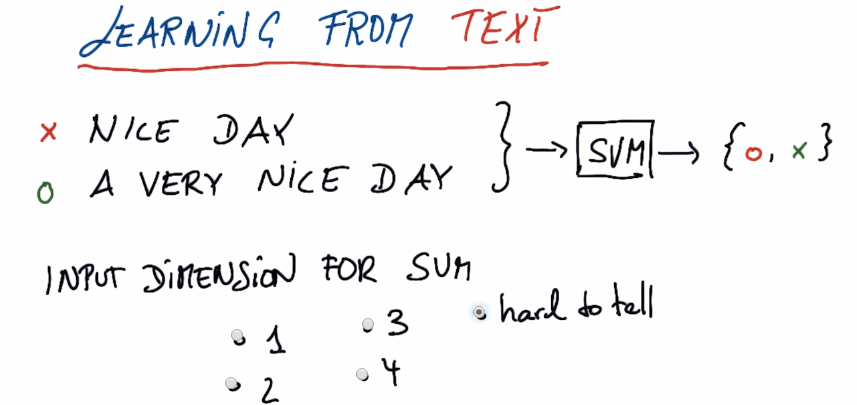 LEARNING FROM TEXT
x NICE DAY
o A VERY NICE DAY
} → SVM → {o, x}
INPUT DIMENSION FOR SVM
1 3 hard to tell
2 4